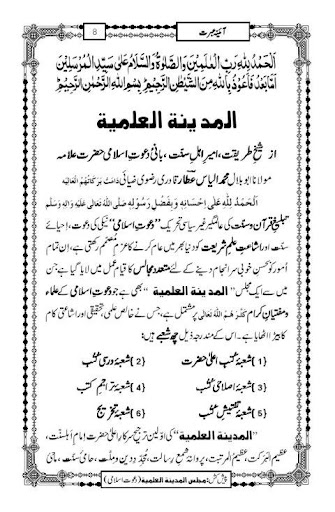 آئینۂ عبرت
8
اَلْحَمْدُ لِلّٰهِ رَبِّ الْعٰلَمِیْنَ وَالصَّلٰوةُ وَالسَّلَامُ عَلٰی سَیِّدِ الْمُرْسَلِیْنَ
اَمَّا بَعْدُ فَاَعُوْذُ بِاللّٰهِ مِنَ الشَّیْطٰنِ الرَّجِیْمِ بِسْمِ اللّٰهِ الرَّحْمٰنِ الرَّحِیْمِ
المدینة العلمیة
از شیخِ طریقت، امیرِ اہلِ سنّت، بانیٔ دعوتِ اسلامی حضرت علامہ
مولانا ابو بلال محمد الیاس عطار قادری رضوی ضیائی دَامَتْ بَرَکَاتُہُمُ الْعَالِیَہ
اَلْحَمْدُ لِلّٰهِ عَلٰی اِحْسَانِهٖ وَ بِفَضْلِ رَسُوْلِهٖ صَلَّی اللّٰهُ تَعَالٰی عَلَیْهِ وَاٰلِهٖ وَسَلَّم
تبلیغِ قرآن و سنّت کی عالمگیر غیر سیاسی تحریک ”دعوتِ اسلامی“ نیکی کی دعوت، اِحیائے
سنّت اور اشاعتِ علمِ شریعت کو دنیا بھر میں عام کرنے کا عزمِ مُصمّم رکھتی ہے، اِن تمام
اُمور کو بحسنِ خوبی سرانجام دینے کے لئے متعدد مجالس کا قیام عمل میں لایا گیا ہے جن
میں سے ایک مجلس ”المدینة العلمیة“ بھی ہے جو دعوتِ اسلامی کے عُلماء
و مُفتیانِ کرام کَثَّرَھُمُ اللّٰهُ تَعَالٰی پر مشتمل ہے، جس نے خالص علمی، تحقیقی اور اشاعتی کام
کا بیڑا اٹھایا ہے۔ اس کے مندرجہ ذیل چھ شعبے ہیں:
{1} شعبۂ کتبِ اعلیٰ حضرت {2} شعبۂ درسی کُتُب
{3} شعبۂ اصلاحی کُتُب {4} شعبۂ تراجمِ کتب
{5} شعبۂ تفتیشِ کُتُب {6} شعبۂ تخریج
”المدینة العلمیة“ کی اوّلین ترجیح سرکارِ اعلیٰ حضرت اِمامِ اَہلسنّت،
عظیمُ البَرَکت، عظیمُ المرتبت، پروانۂ شمعِ رسالت، مُجدّدِ دین و ملّت، حامیٔ سنّت،
پیش کش: مجلس المدینة العلمیة (دعوتِ اسلامی)